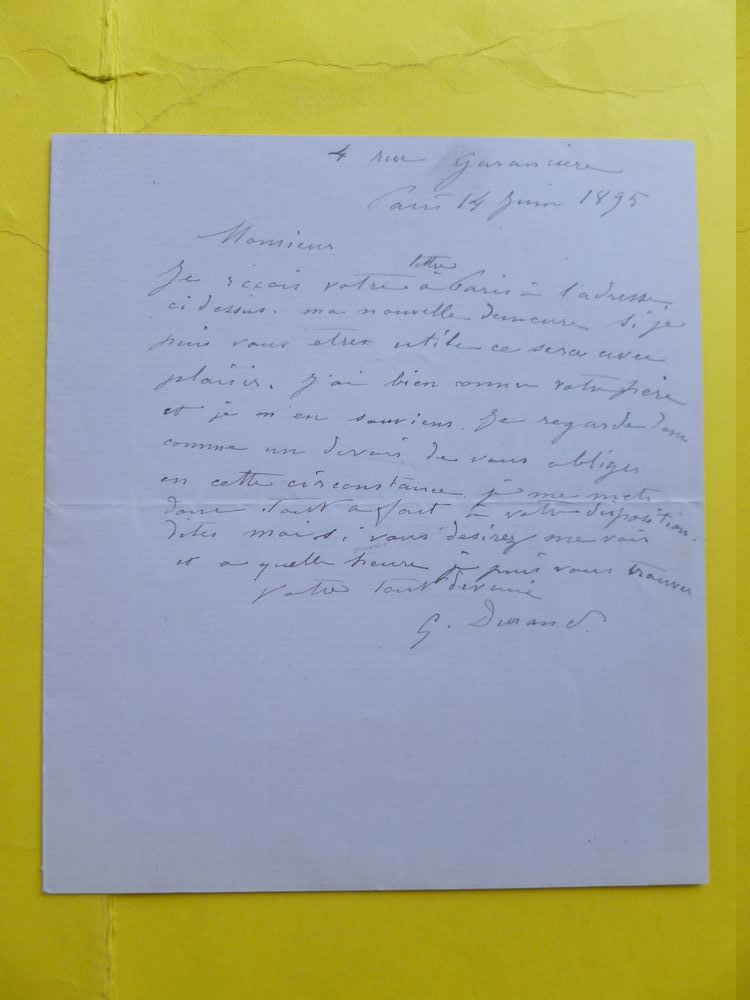 4 rue Garancière
Paris 14 Juin 1895
Monsieur
lettre
Je reçois votre à Paris à l'adresse
ci dessus. ma nouvelle demeure si je
puis vous etres utile ce sera avec
plaisir. J'ai bien connu votre père
et je m'en souviens. Je regarde donc
comme un devoir de vous obliger
en cette circonstance. je me mets
donc tout a fait à votre disposition.
dites moi si vous désirez me voir
et a quelle heure je puis vous trouver
Votre tout dévoué
G. Durand.